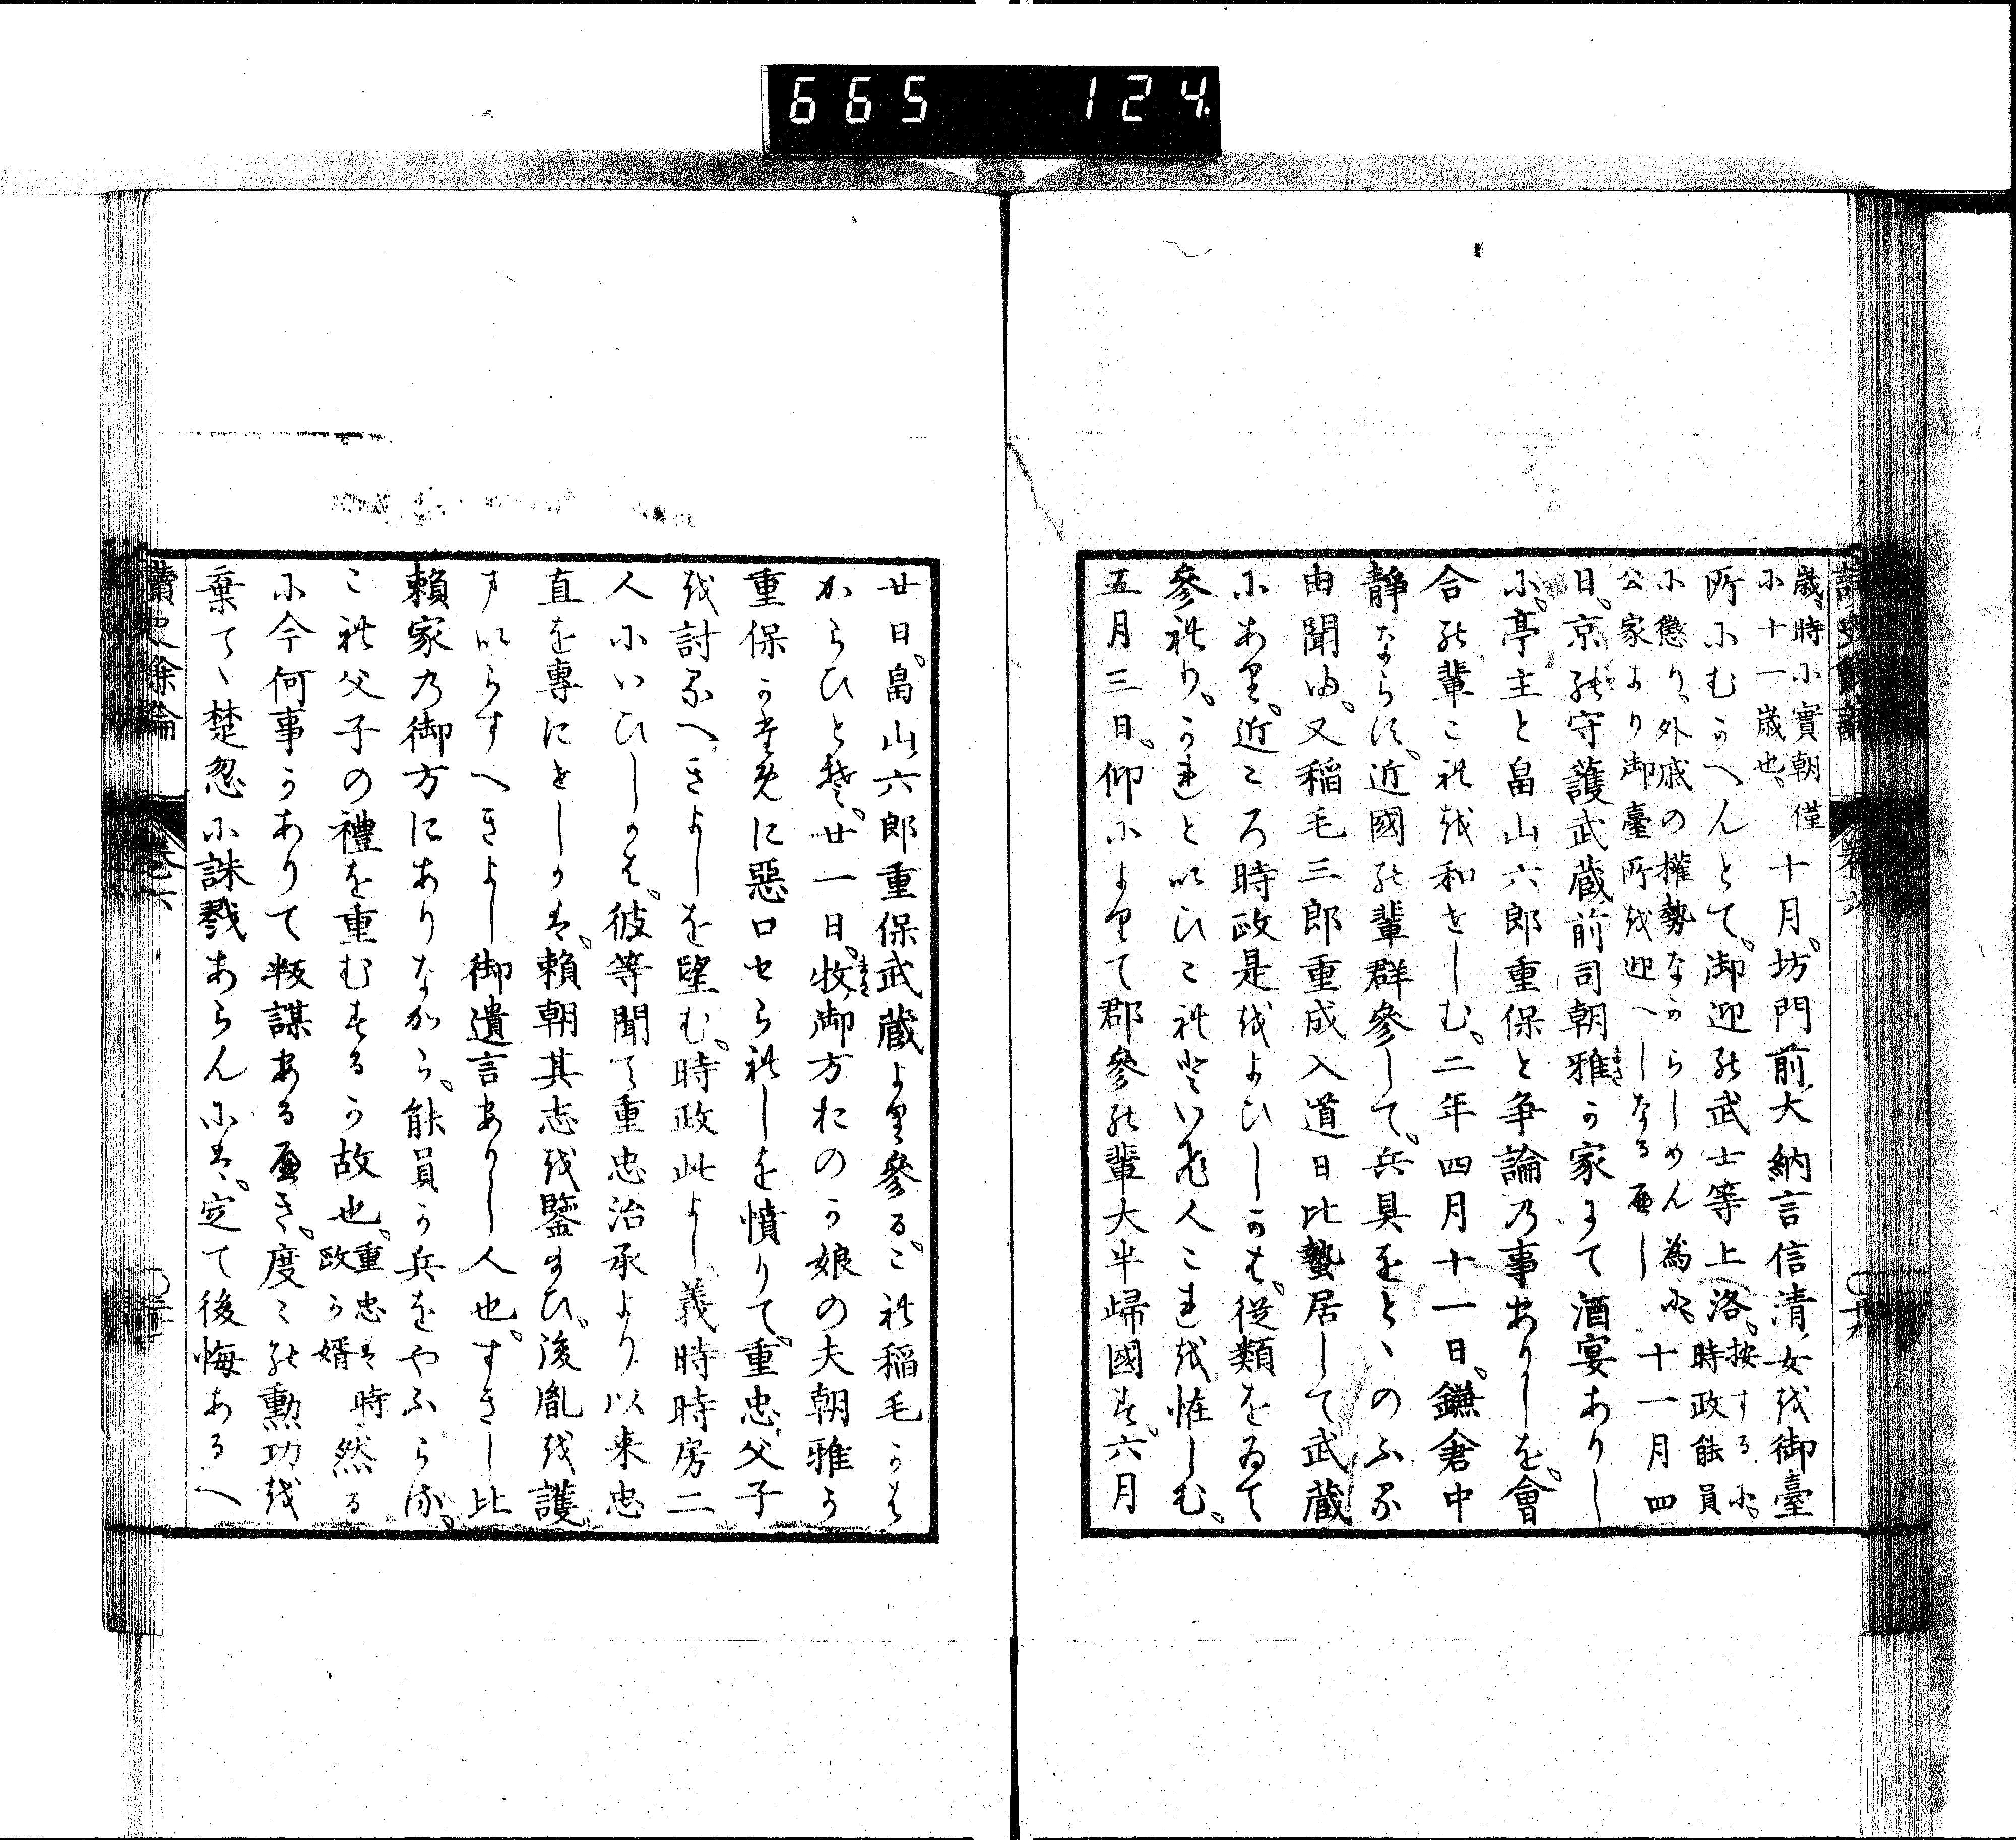 665 124
歳、時に實朝僅
に十一歳也、
十月。坊門前大納言信清ノ女を御臺
所にむかへんとて。御迎の武士等上洛。
按するに。時政能員
に懲り、外戚の權勢なからしめん為に。
公家より御臺所を迎へしなるべし
十一月四
日。京の守護武蔵前司朝雅か家にて酒宴ありし
に。亭主と畠山六郎重保と争論の事ありしを。會
合の輩これを和せしむ。二年四月十一日。鎌倉中
静ならす。近國の輩群參して。兵具をとゝのふる
由聞ゆ。又稲毛三郎重成入道日比蟄居して武蔵
にあり。近ころ時政是をよひしかは。従類をゐて
參れり。かれといひこれといひ人これを恠しむ。
五月三日。仰によりて郡參の輩大半歸國す。六月
廿日。畠山六郎重保武蔵より參る。これ稲毛かは
からひとそ。廿一日。牧ノ御方おのか娘の夫朝雅か
重保かために惡口せられしを憤りて。重忠父子
を討るへきよしを望む。時政此よし義時時房二
人にいひしかは。彼等聞て重忠治承より以来忠
直を專にせしかは。頼朝其志を鑒給ひ。後胤を護
まいらすへきよし御遺言ありし人也。すきし比
頼家の御方にありなから。能員か兵をやふらる。
これ父子の禮を重むするか故也。
重忠は時
政か婿
然る
に今何事かありて叛謀あるべき。度々の勲功を
棄てゝ楚忽に誅戮あらんには。定て後悔あるへ
讀史餘論
巻之六